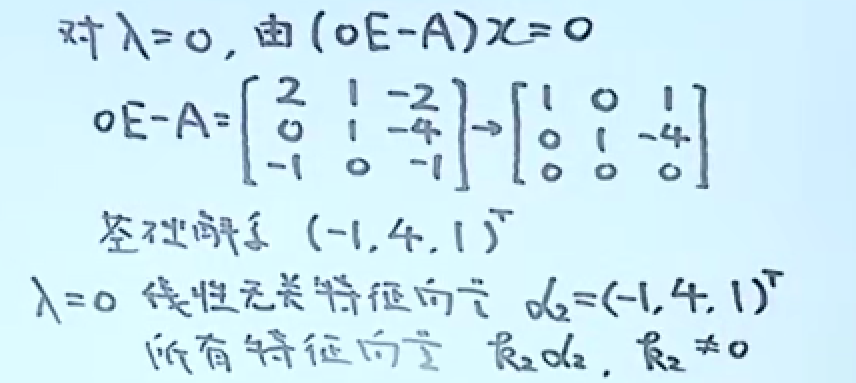 对λ=0, 由(0E-A)x=0
0E-A=[2 1 -2; 0 1 -4; -1 0 -1]→[1 0 1; 0 1 -4; 0 0 0]
基础解系 (-1,4,1)ᵀ
λ=0 线性无关特征向量 α₂=(-1,4,1)ᵀ
所有特征向量 k₂α₂, k₂≠0